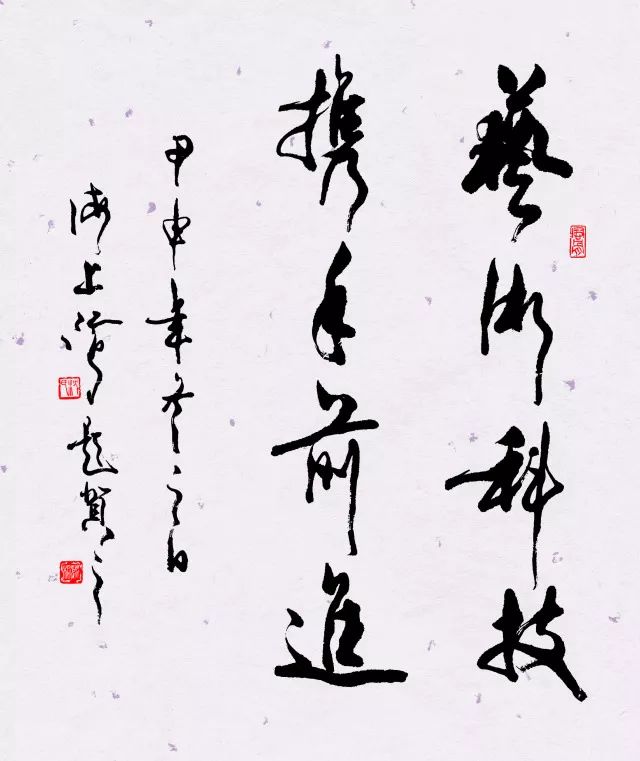 藝術科技
携手前進
甲申年冬之日
海上題賀之